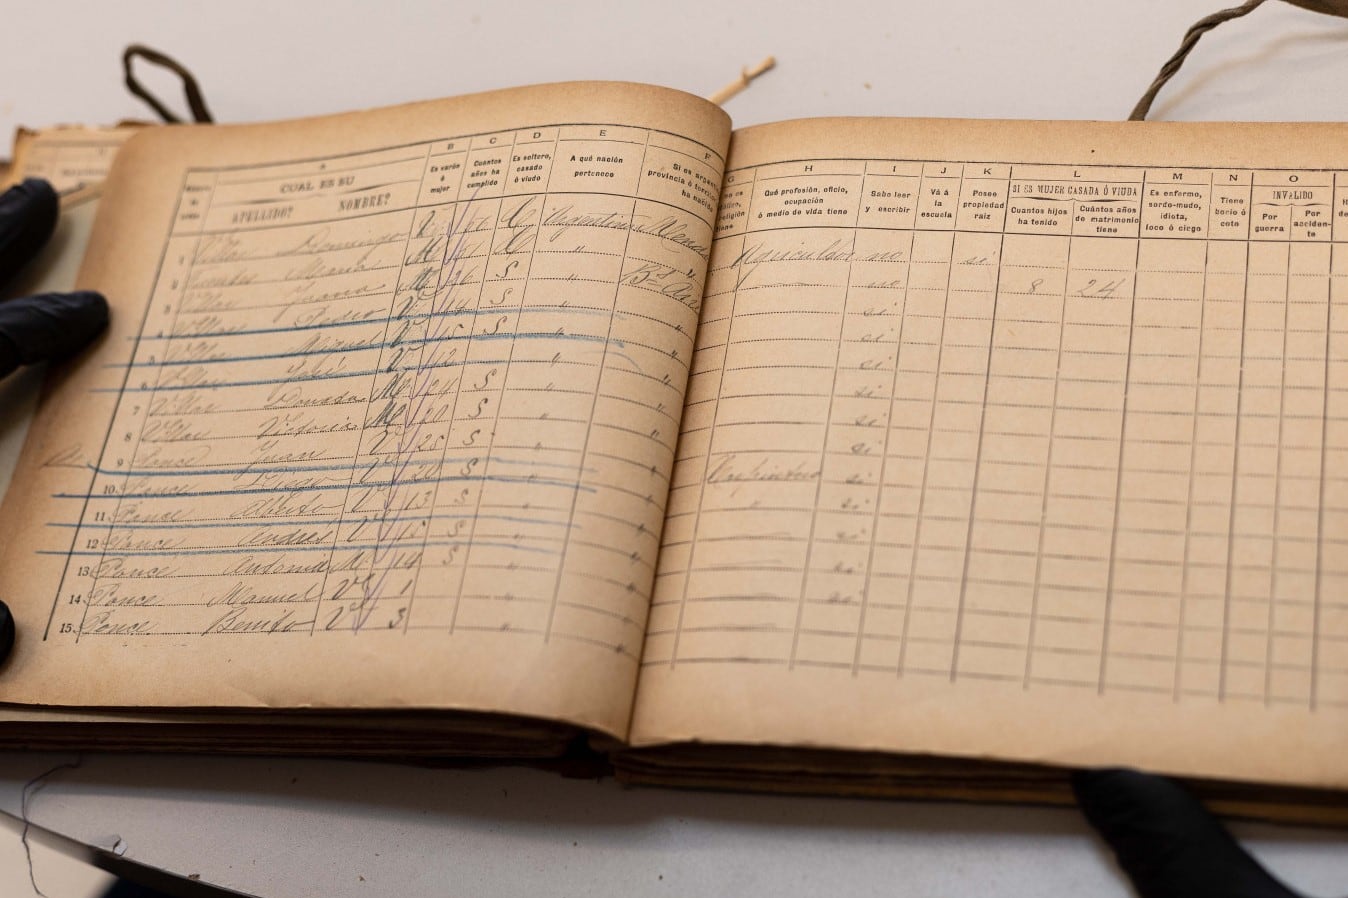 A B C D E F
CUAL ES SU
APELLIDO? NOMBRE?
Es varón ó mujer
Cuantos años ha cumplido
Es soltero, casado ó viudo
A qué nación pertenece
Si es provincia ó ha nacido
G H I J K L M N O
Qué profesión, oficio, ocupación ó medio de vida tiene
Sabe leer y escribir
Vá á la escuela
Posee propiedad raiz
SI ES MUJER CASADA Ó VIUDA
Cuantos hijos ha tenido
Cuántos años de matrimonio tiene
Es enfermo, sordo-mudo, idiota, loco ó ciego
Tiene bocio ó coto
INVÁLIDO
Por guerra
Por accidente
1 Villar Domingo V C Argentina Agricultor no si
2 María M C " no 8 24
3 Villar Juana M 26 S " Bs si
4 Villar Pedro V S " " si
5 Villar Miguel V 15 S " " si
6 Villar José V 12 " " si
7 Villar M 24 S " " si
8 Villar Victoria M 20 S " " si
9 Ponce Juan V 25 S " " Carpintero si
10 Ponce Diego V 20 S " " " si
11 Ponce Alberto V 13 S " "
12 Ponce Andrés V 15 S " "
13 Ponce Antonia M 14 S " "
14 Ponce Manuel V 1 " "
15 Ponce Benito V 3 " "